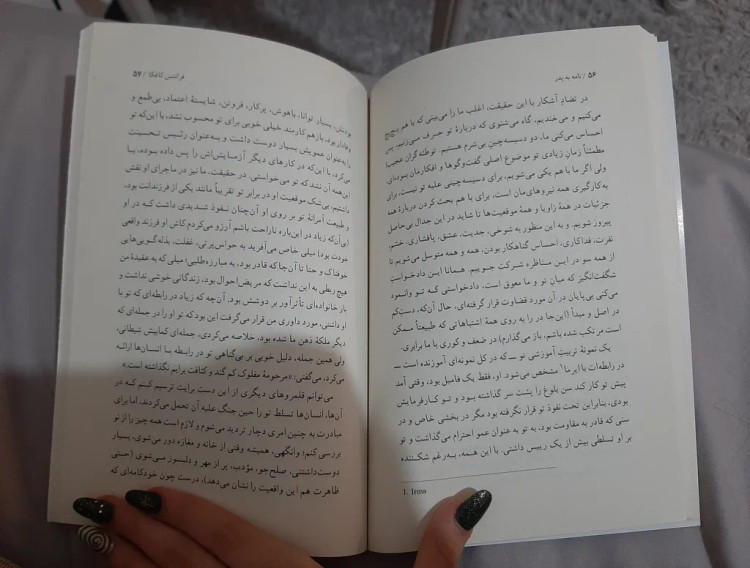 ۵۶ / نامه به پدر
در تضادِ آشکار با این حقیقت، اغلب ما را می‌بینی که با هم پچ‌پچ
می‌کنیم و می‌خندیم. گاه می‌شنوی که دربارهٔ تو حرف می‌زنیم. پس
احساس می‌کنی، ما، دو دسیسه‌چینِ بی‌شرم هستیم. توطئه‌گرانِ عجیب!
مطمئناً زمانِ زیادی تو موضوع اصلی گفت‌وگوها و افکارمان بوده‌ای.
ولی اگر ما با هم یکی می‌شویم، برای دسیسه‌چینی علیه تو نیست، برای
به‌کارگیری همه نیروهای‌مان است، برای با هم بحث کردن دربارهٔ همه
جزئیات در همهٔ زوایا و همهٔ موقعیت‌ها تا شاید در این جدال بی‌حاصل
پیروز شویم. و به این منظور به شوخی، جدیت، عشق، پافشاری، خشم،
نفرت، فداکاری، احساس گناهکار بودن، همه و همه متوسل می‌شویم تا
از همه سو در این مناظره شرکت جوییم. همانا این دادخواستِ
شگفت‌انگیز که میان تو و ما معوق است. دادخواستی که تو وانمود
می‌کنی بی‌پایان در آن مورد قضاوت قرار گرفته‌ای، حال آن‌که، دستِ‌کم
در اصل و مبدأ (این‌جا در را به روی همهٔ اشتباهاتی که طبیعتاً ممکن
است مرتکب شده باشم، باز می‌گذارم) در ضعف و کوری با ما برابری.
یک نمونهٔ تربیتِ آموزشی تو ــ که در کل نمونه‌ای آموزنده است ــ
در رابطه‌ات با ایرما¹ مشخص می‌شود. او، فقط یک فامیل بود، وقتی آمد
پیش تو کار کند سن بلوغ را پشت سر گذاشته بود و تو کارفرمایش
بودی، بنابراین تحت نفوذ تو قرار نگرفته بود مگر در بخشی خاص و در
سنی که قادر به مقاومت بود، به تو به عنوان عمو احترام می‌گذاشت و تو
بر او تسلطی بیش از یک رییس داشتی. با این همه، به‌رغم شکننده
1. Irma
فرانتس کافکا / ۵۷
بودنش، بسیار توانا، باهوش، پرکار، فروتن، شایستهٔ اعتماد، بی‌طمع و
وفادار بود. بازهم کارمند خیلی خوبی برای تو محسوب نشد. با این‌که تو
را به‌عنوان عمویش بسیار دوست داشت و به‌عنوان رئیس تحسینت
می‌کرد، با این‌که در کارهای دیگر آزمایش‌اش را پس داده بود، با
این همه آن نشد که تو می‌خواستی. در حقیقت، ما نیز در ماجرای او نقش
داشتیم، بی‌شک موقعیت او در برابر تو تقریباً مانند یکی از فرزندانت بود،
و طبیعت آمرانهٔ تو بر روی او آن‌چنان نفوذ شدیدی داشت که در او
(بی‌آن‌که زیاد در این‌باره ناراحت باشم آرزو می‌کردم کاش او فرزند واقعی
خودت بود) میلی خاص می‌آفرید به حواس‌پرتی، غفلت، بذله‌گویی‌هایی
خوفناک و حتا تا آن‌جا که قادر بود، به مبارزه‌طلبی؛ میلی که به عقیدهٔ من
هیچ ربطی به این نداشت که مریض‌احوال بود، زندگانی خوشی نداشت و
بار خانواده‌ای تأثرآور بر دوشش بود. آن‌چه که زیاد در رابطه‌ای که تو با
او داشتی، مورد داوری من قرار می‌گرفت این بود که تو او را در جمله‌ای که
دیگر ملکهٔ ذهن ما شده بود، خلاصه می‌کردی، جمله‌ای کمابیش شیطانی،
ولی همین جمله، دلیل خوبی بر بی‌گناهی تو در رابطه با انسان‌ها ارائه
می‌کرد، می‌گفتی: «مرحومهٔ مفلوک کم گند و کثافت برایم نگذاشته است.»
می‌توانم قلمروهای دیگری از این دست برایت ترسیم کنم که در
آن‌ها، انسان‌ها تسلط تو را حین جنگ علیه آن تحمل می‌کردند، اما برای
مبادرت به چنین امری دچار تردید می‌شوم و لازم است همه چیز را از نو
بررسی کنم؛ وانگهی، همیشه وقتی از خانه و مغازه دور می‌شوی، بسیار
دوست‌داشتنی، صلح‌جو، مؤدب، پر از مهر و دلسوز می‌شوی (حتی
ظاهرت هم این واقعیت را نشان می‌دهد)، درست چون خودکامه‌ای که